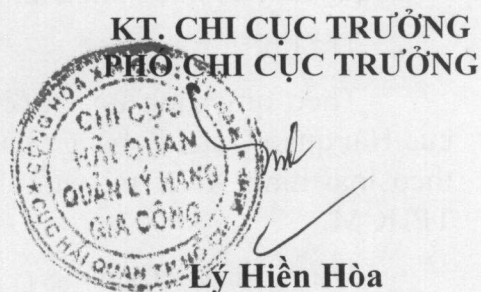 KT. CHI CỤC TRƯỞNG
PHÓ CHI CỤC TRƯỞNG
CHI CỤC
HẢI QUAN
QUẢN LÝ HÀNG
GIA CÔNG
CỤC HẢI QUAN TP
Lý Hiền Hòa